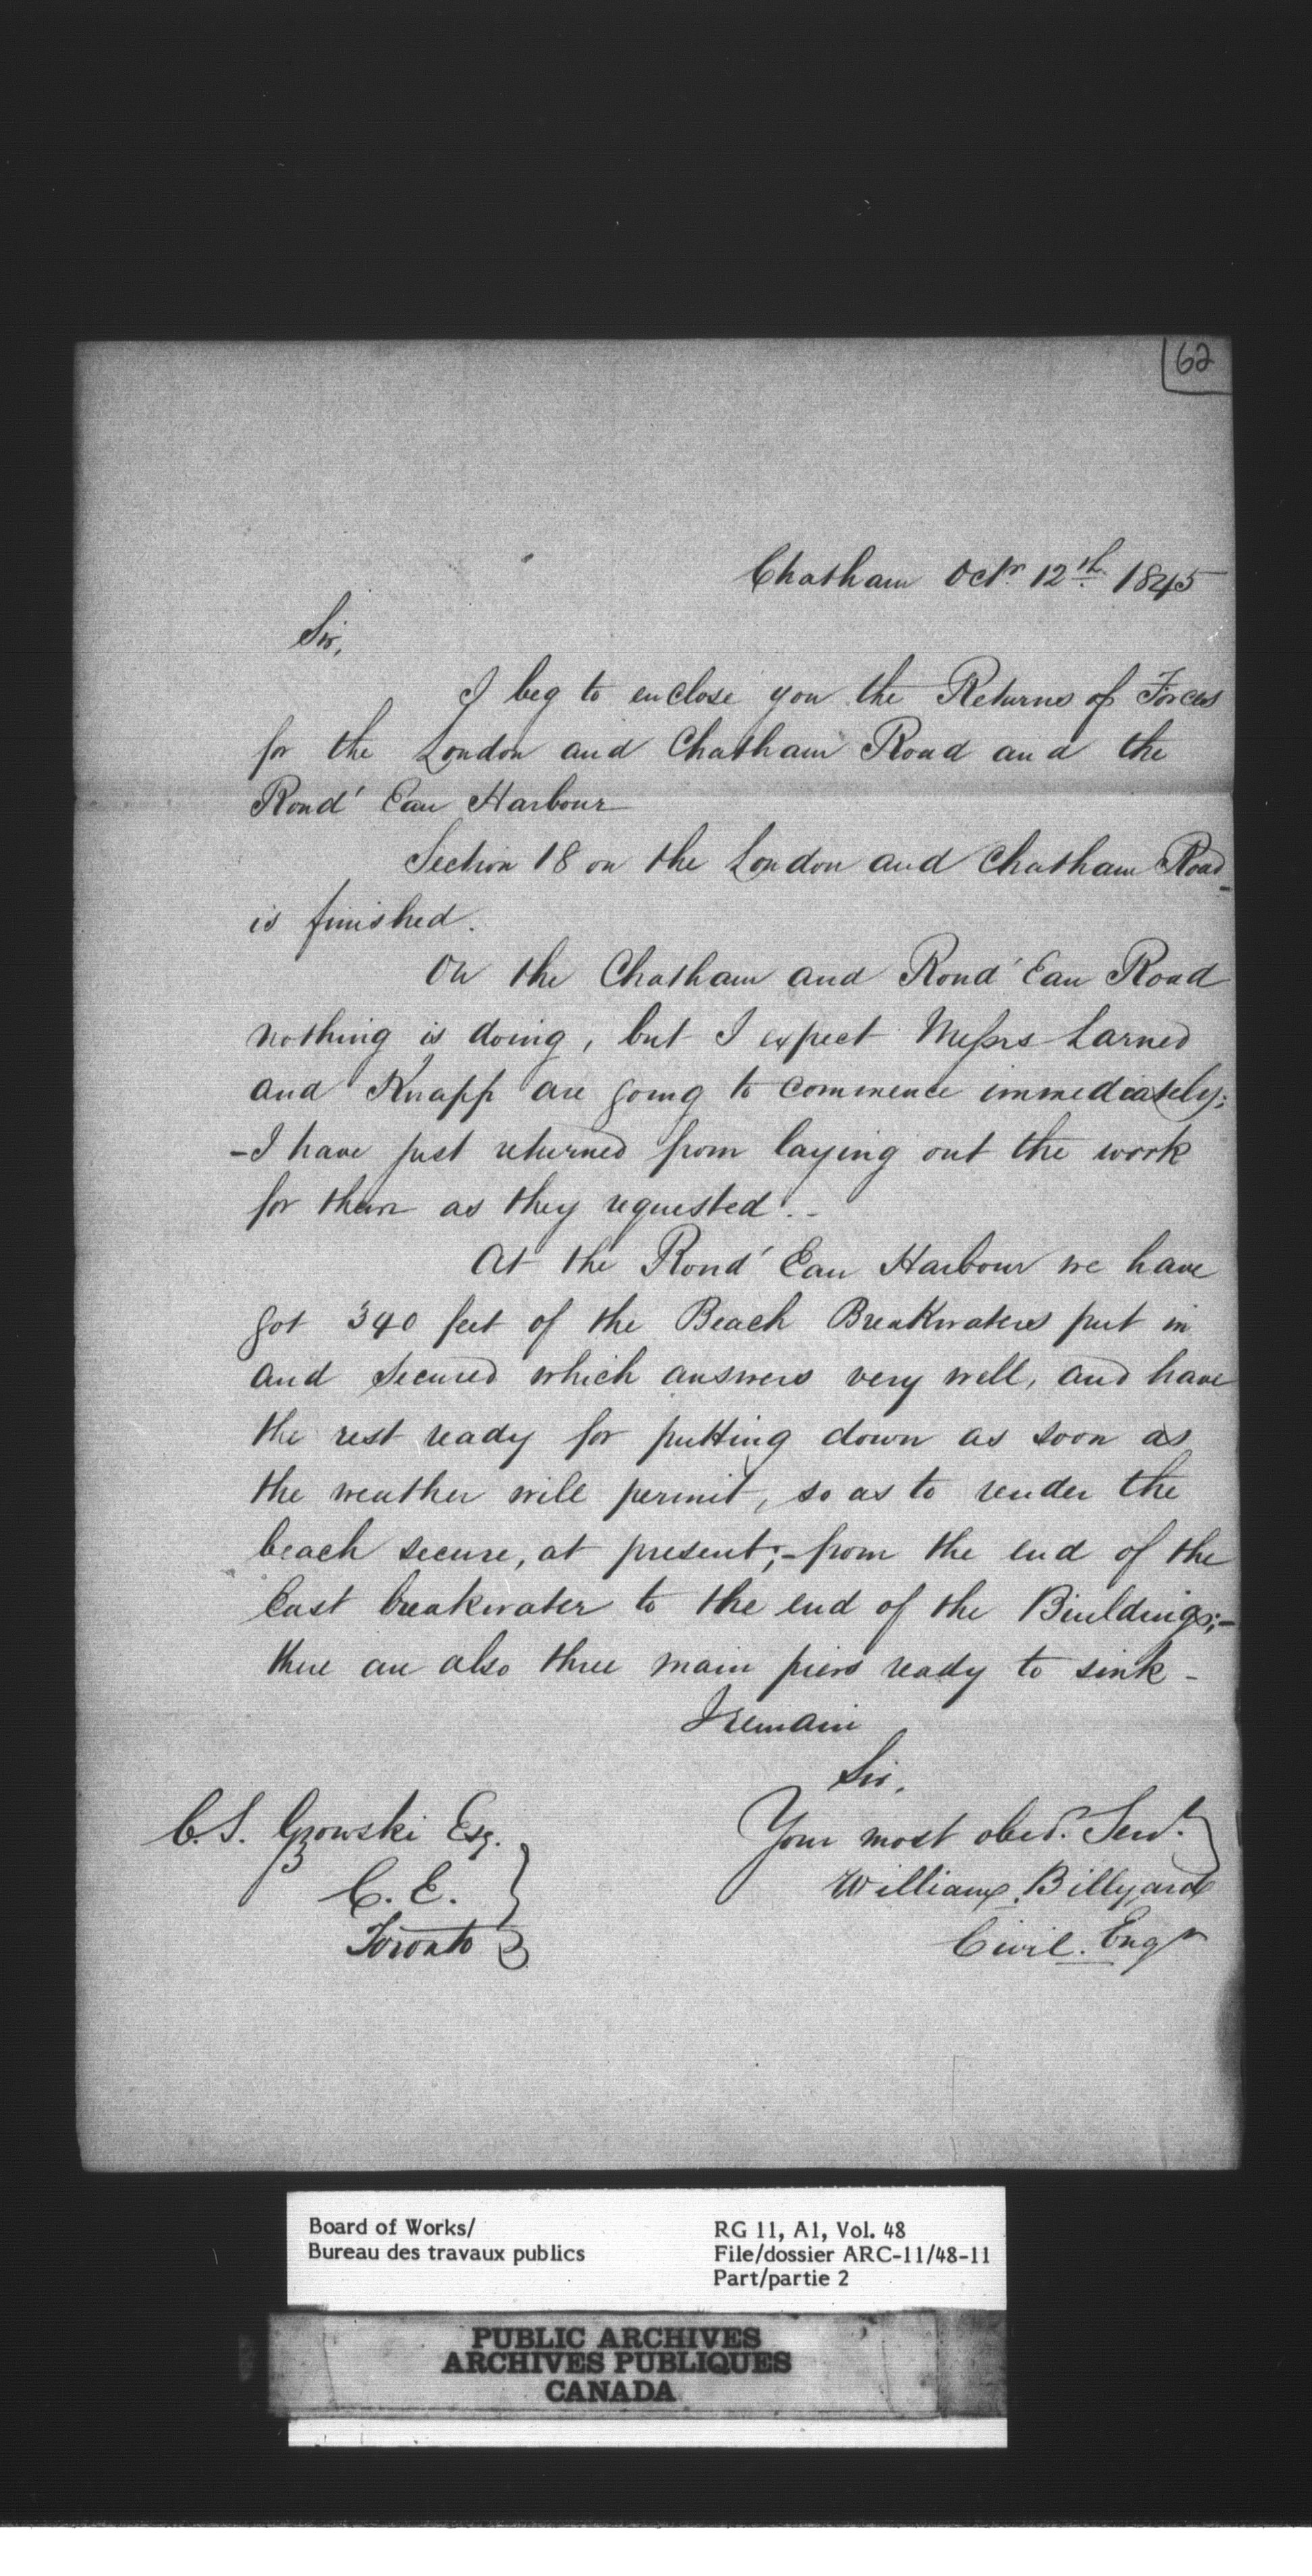 62
Chatham Octr 12th 1845
Sir,
I beg to enclose you the Returns of Forces
for the London and Chatham Road and the
Rond' Eau Harbour
Section 18 on the London and Chatham Road
is finished.
On the Chatham and Rond' Eau Road
nothing is doing, but I expect Messrs Larned
and Knapp are going to commence immediately;
- I have just returned from laying out the work
for them as they requested. -
At the Rond' Eau Harbour we have
got 340 feet of the Beach Breakwaters put in
and secured which answers very well, and have
the rest ready for putting down as soon as
the weather will permit, so as to render the
beach secure, at present; - from the end of the
East breakwater to the end of the Buildings; -
there are also three main piers ready to sink -
I remain
Sir,
Your most obed. Servt.
William Billyard
Civil. Engr
C. S. Gzowski Esq.
C. E.
Toronto
Board of Works/
Bureau des travaux publics
RG 11, A1, Vol. 48
File/dossier ARC-11/48-11
Part/partie 2
PUBLIC ARCHIVES
ARCHIVES PUBLIQUES
CANADA